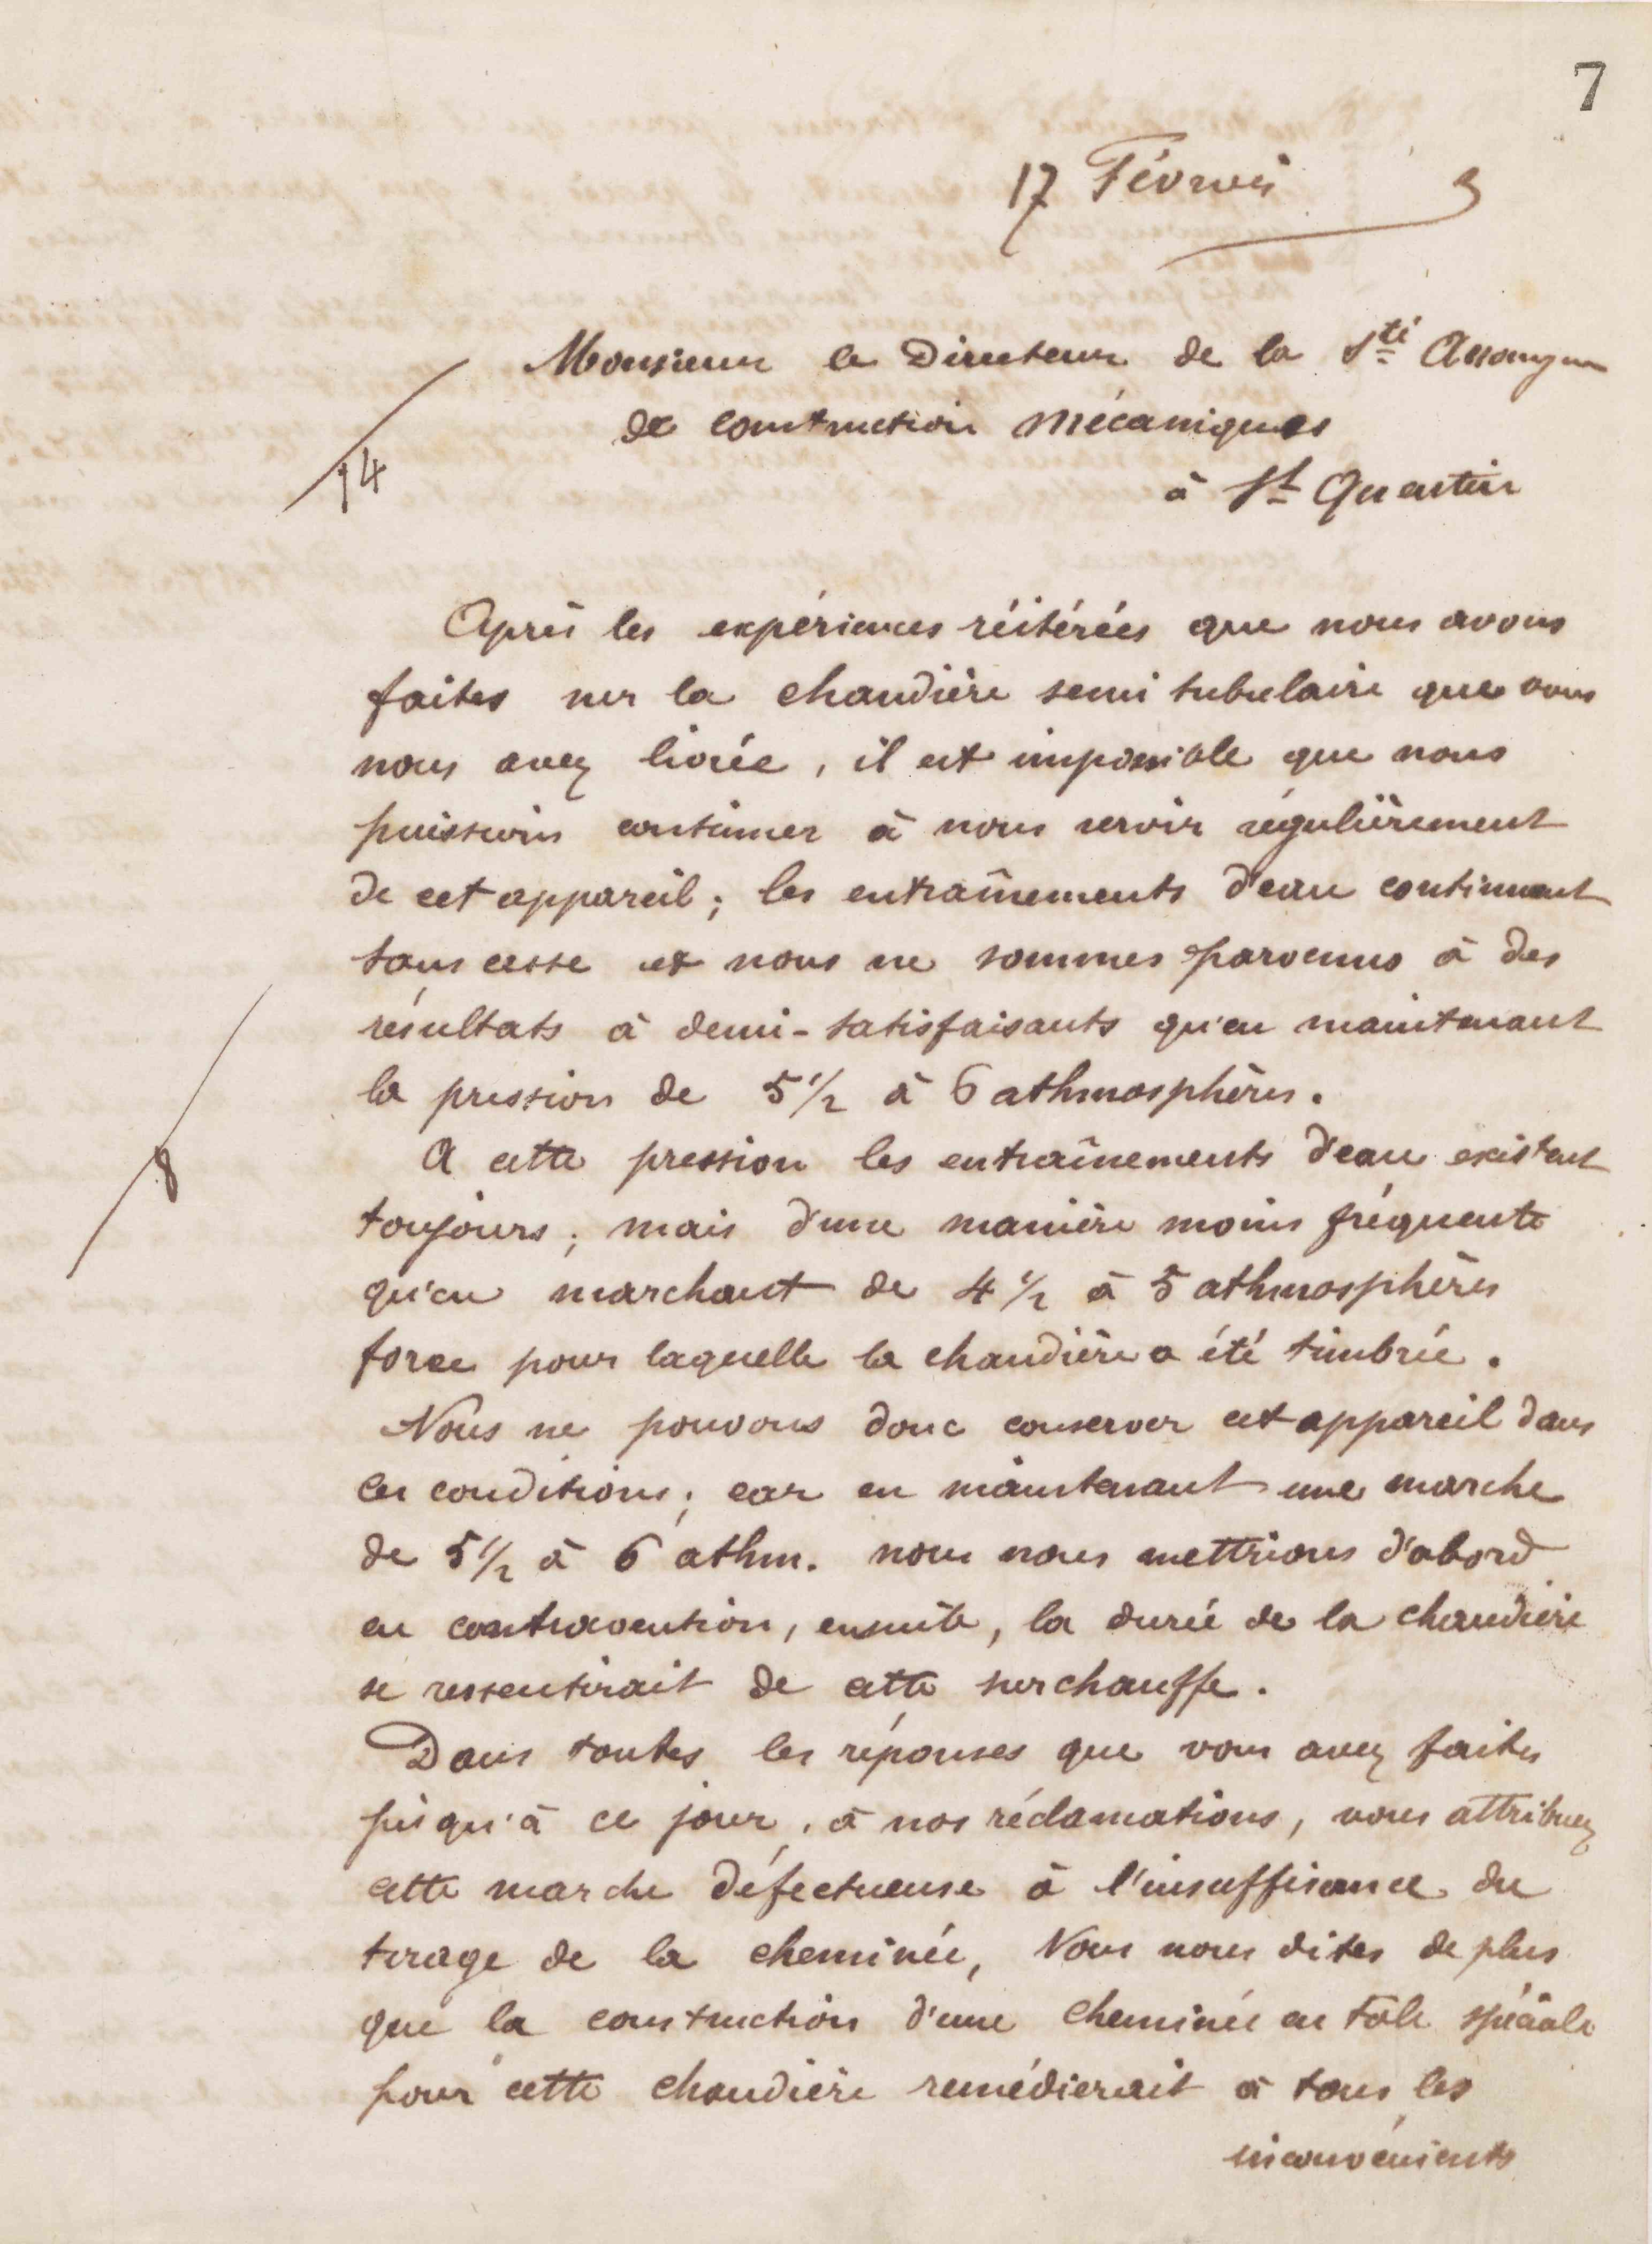 7
17 Février 3
Monsieur le Directeur de la Sté Anonyme
de construction mécaniques
à St Quentin
14
Après les expériences réitérées que nous avons
faites sur la chaudière semi tubulaire que vous
nous avez livrée, il est impossible que nous
puissions continuer à nous servir régulièrement
de cet appareil; les entraînements d'eau continuent
sans cesse et nous ne sommes parvenus à des
résultats à demi-satisfaisants qu'en maintenant
la pression de 5 1/2 à 6 athmosphères.
A cette pression les entraînements d'eau existent
8
toujours; mais d'une manière moins fréquente
qu'en marchant de 4 1/2 à 5 athmosphères
force pour laquelle la chaudière a été timbrée.
Nous ne pouvons donc conserver cet appareil dans
ces conditions; car en maintenant une marche
de 5 1/2 à 6 athm. nous nous mettrions d'abord
en contravention, ensuite, la durée de la chaudière
se ressentirait de cette surchauffe.
Dans toutes les réponses que vous avez faites
jusqu'à ce jour, à nos réclamations, vous attribuez
cette marche défectueuse à l'insuffisance du
tirage de la cheminée, Vous nous dites de plus
que la construction d'une cheminée en tôle spéciale
pour cette chaudière remédierait à tous les
inconvénients